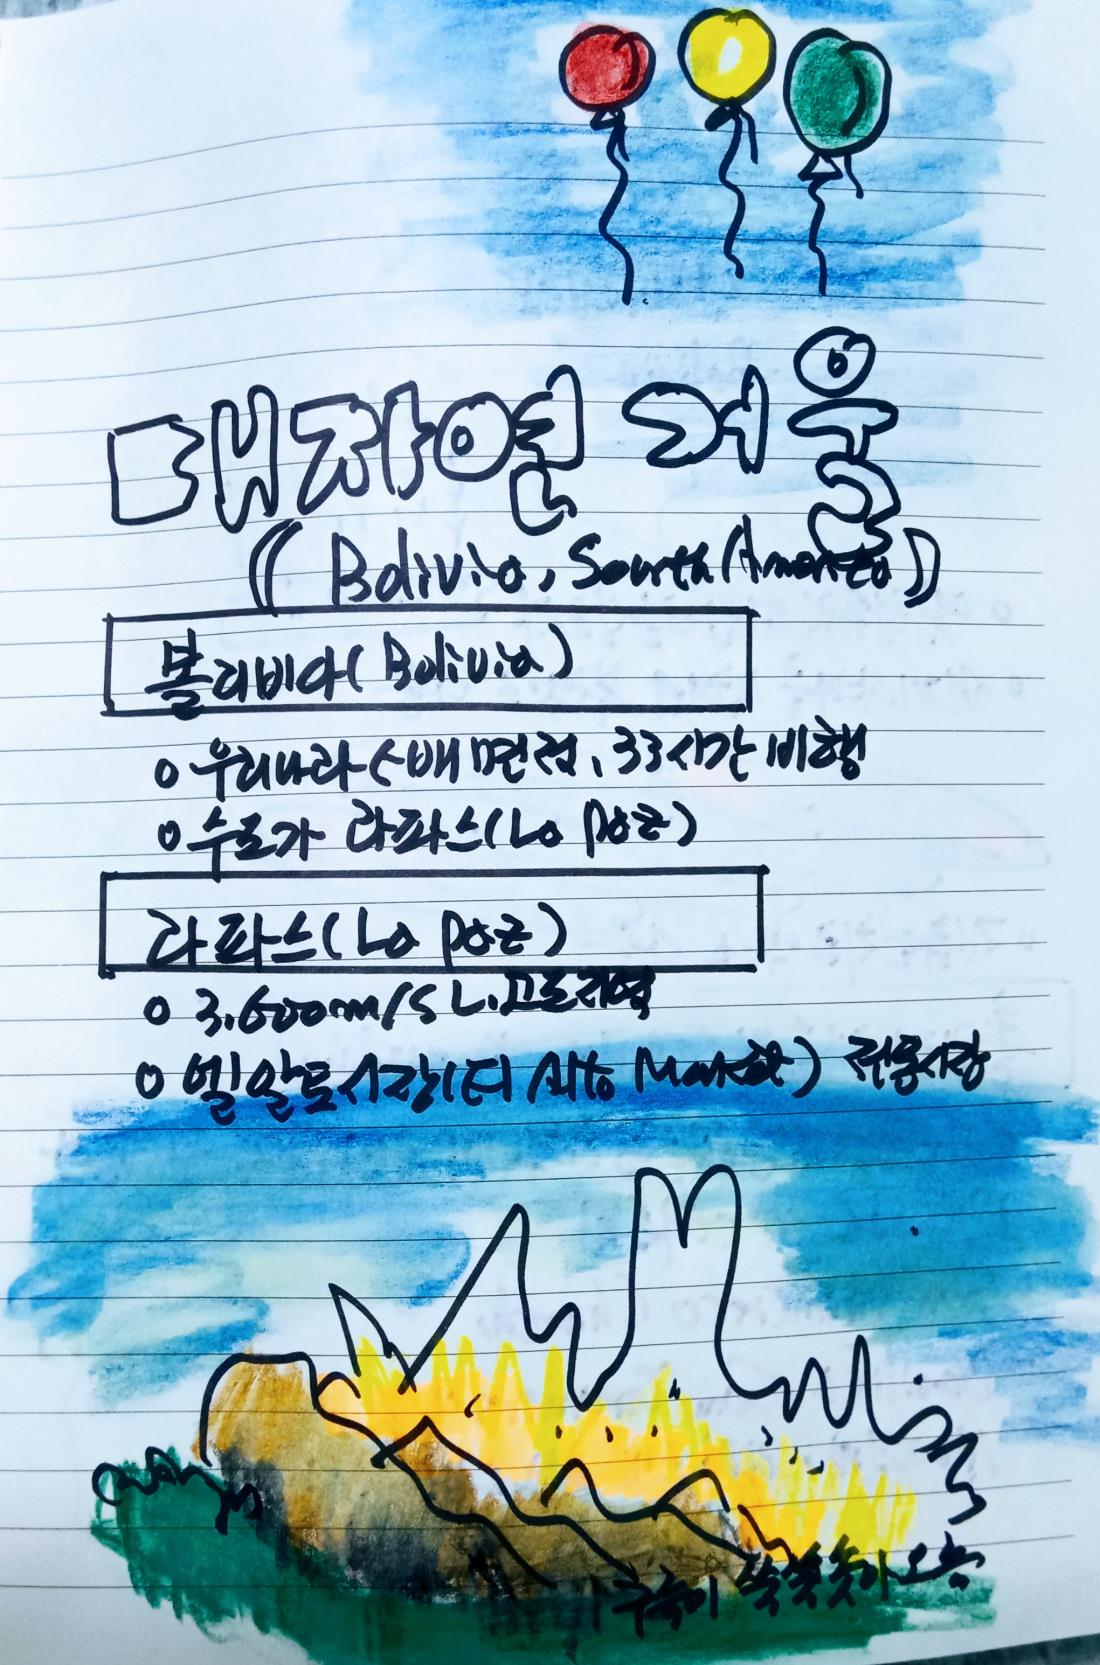 대자연 거울
(( Bolivia, South America ))
볼리비아(Bolivia)
o 우리나라 5배 면적, 33시간 비행
o 수도가 라파스(La Paz)
라파스(La Paz)
o 3.600m/S L.고도지역
o 엘알토시장(El Alto Market) 전통시장
쑥쑥솟아오름